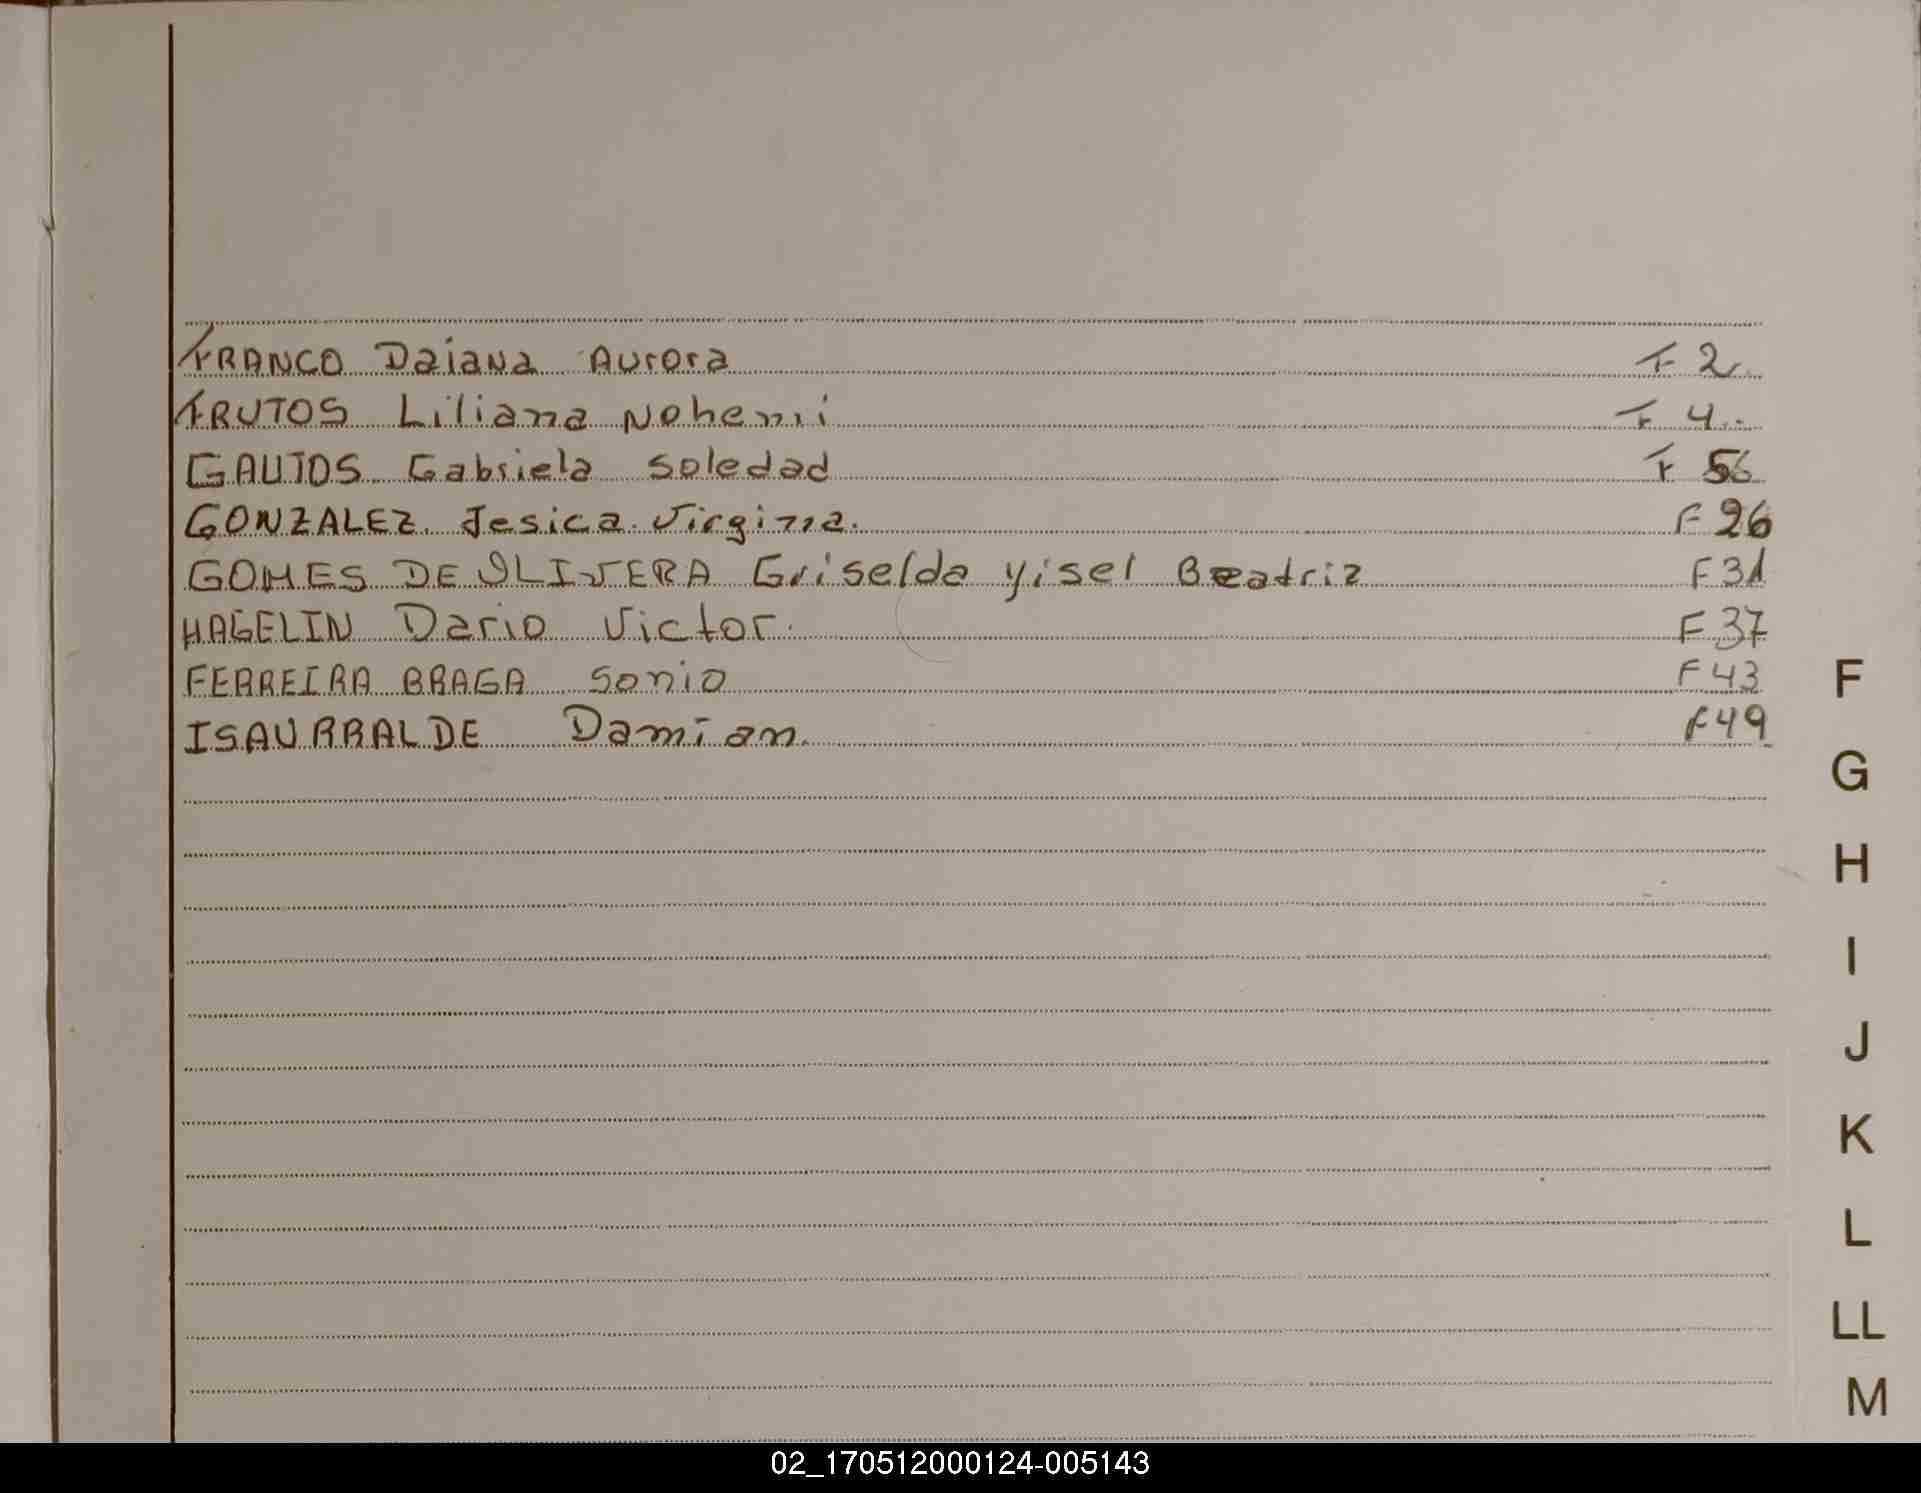 FRANCO Daiana Aurora F 2
FRUTOS Liliana Nohemi F 4
GAUTOS Gabriela Soledad F 56
GONZALEZ Jesica Virginia F 26
GOMES DE OLIVERA Griselda Yisel Beatriz F 31
HAGELIN Dario Victor F 37
FERREIRA BRAGA Sonia F 43
ISAURRALDE Damian F 49
F
G
H
I
J
K
L
LL
M
02_170512000124-005143